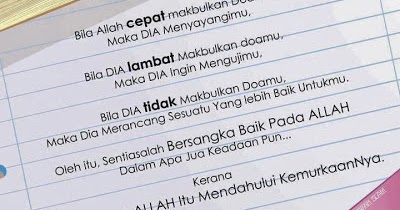 Bila Allah cepat makbulkan Doamu,
Maka DIA Menyayangimu,
Bila DIA lambat Makbulkan doamu,
Maka DIA Ingin Mengujimu,
Bila DIA tidak Makbulkan Doamu,
Maka Dia Merancang Sesuatu Yang lebih Baik Untukmu.
Oleh itu, Sentiasalah Bersangka Baik Pada ALLAH
Dalam Apa Jua Keadaan Pun...
Kerana
ALLAH Itu Mendahului KemurkaanNya.